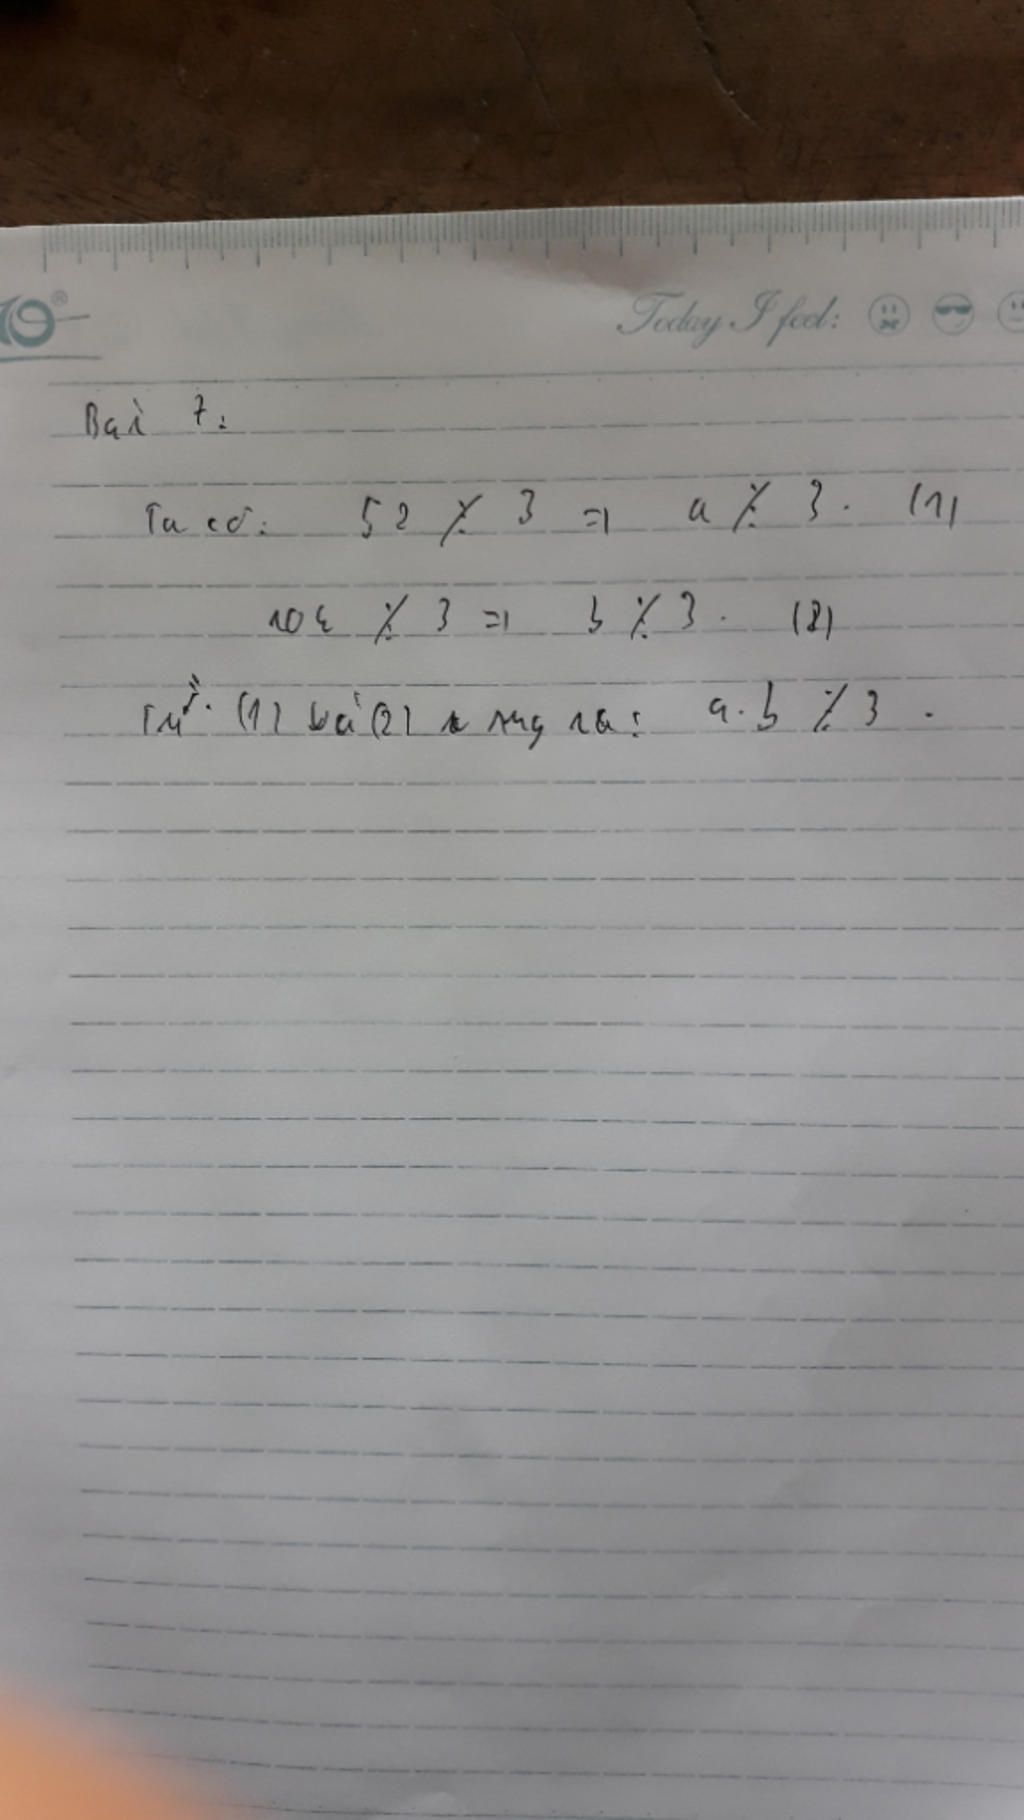 10®
Today I feel:
Bài 7:
Ta có: 52 ⋮̸ 3 => a ⋮̸ 3. (1)
104 ⋮̸ 3 => b ⋮̸ 3. (2)
Từ (1) và (2) suy ra: a.b ⋮̸ 3.